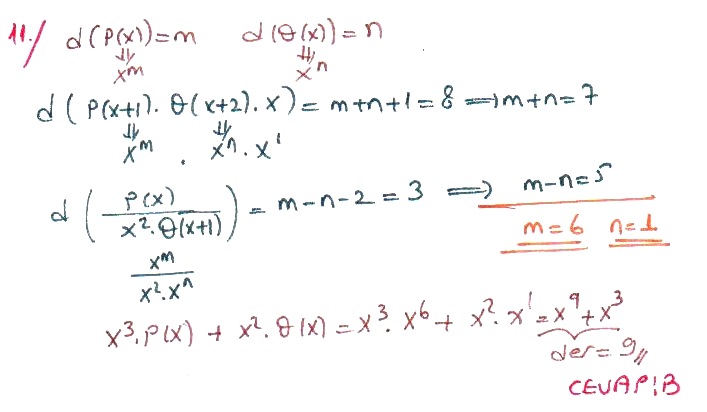 11./ d(P(x))=m d(Q(x))=n
⇓ ⇓
x^m x^n
d(P(x+1).Q(x+2).x)=m+n+1=8 ⟹ m+n=7
⇓ ⇓
x^m . x^n . x^1
d(P(x)/(x^2.Q(x+1)))=m-n-2=3 ⟹ m-n=5
m=6 n=1
x^m/(x^2.x^n)
x^3.P(x)+x^2.Q(x)=x^3.x^6+x^2.x^1=x^9+x^3
der=9//
CEVAP:B